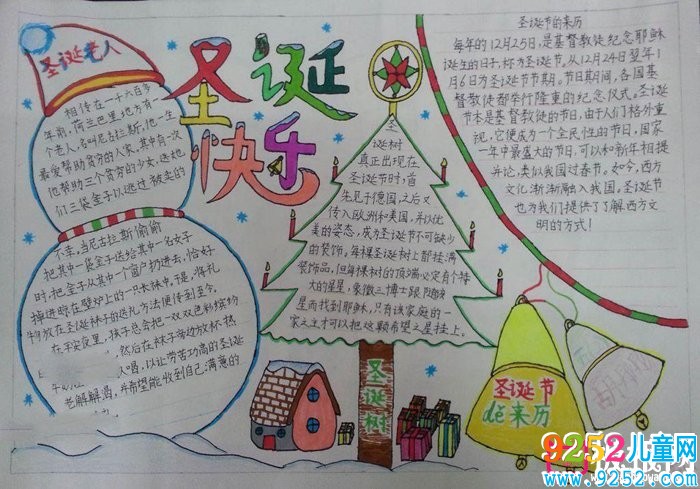 圣诞老人
相传在一千六百多
年前,荷兰巴里地方有一
个老人,名叫尼古拉斯,他一生
最爱帮助贫穷的人家,其中有一次
他帮助三个贫穷的少女,送她
们三袋金子以逃过被卖的
不幸,当尼古拉斯偷偷
把其中一袋金子送给其中一名女子
时,把金子从其中一个窗户扔进去,恰好
掉进晾在壁炉上的一只长袜中,于是,将礼
物放在圣诞袜子的送礼方法便传到至今。
在平安夜里,孩子总会把一双双色彩缤纷
然后在袜子旁边放杯热
人喝,以让劳苦功高的圣诞
老解解渴,并希望能收到自己满意的
圣诞
快乐
圣
诞树
真正出现在
圣诞节时,首
先见于德国,之后又
传入欧洲和美国,并以优
美的姿态,成为圣诞节不可缺少
的装饰,每棵圣诞树上都挂满
装饰品,但每棵树的顶端必定有个特
大的星星,象徵三博士跟随该
星而找到耶稣,只有该家庭的一
家之主才可以把这颗希望之星挂上。
圣诞树
圣诞节的来历
每年的12月25日,是基督教徒纪念耶稣
诞生的日子,称为圣诞节,从12月24日翌年1
月6日为圣诞节节期。节日期间,各国基
督教徒都举行隆重的纪念仪式。圣诞
节本是基督教徒的节日,由于人们格外重
视,它便成为一个全民性的节日,国家
一年中最盛大的节日,可以和新年相提
并论,类似我国过春节。如今,西方
文化渐渐融入我国,圣诞节
也为我们提供了了解西方文
明的方式!
圣诞节
dè来历
9252儿童网
www.9252.com